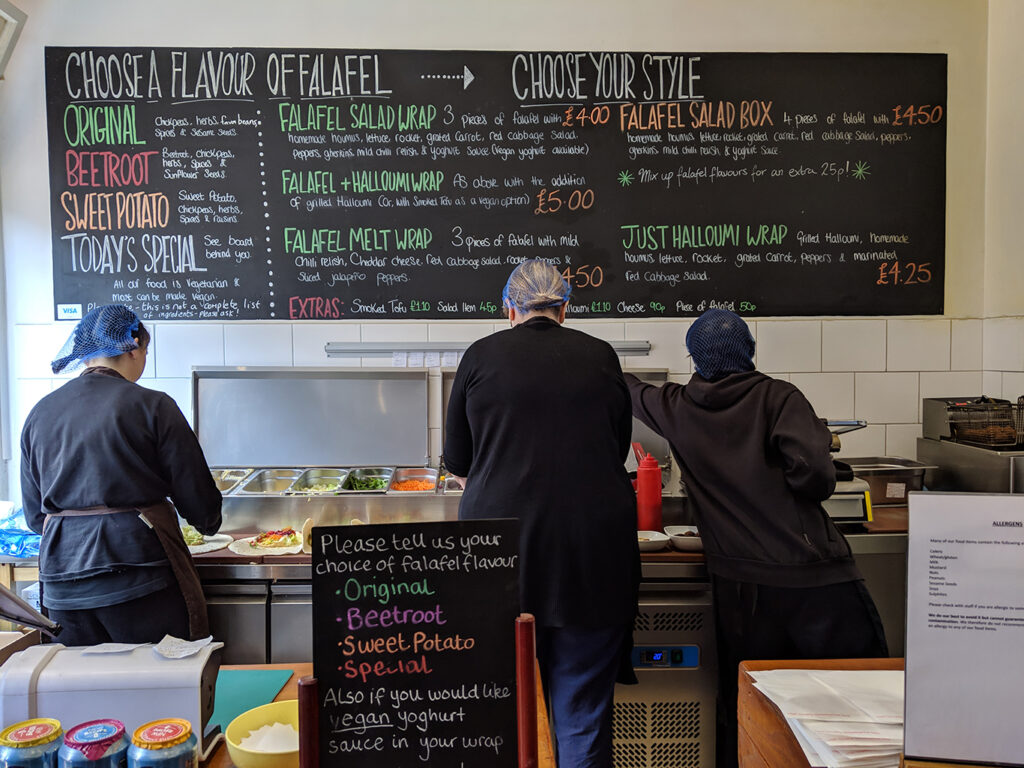 CHOOSE A FLAVOUR OF FALAFEL
ORIGINAL
Chickpeas, herbs, broad beans,
Spices & Sesame Seeds.
BEETROOT
Beetroot, chickpeas,
herbs, spices &
Sunflower Seeds.
SWEET POTATO
Sweet Potato,
Chickpeas, herbs,
Spices & raisins
TODAY'S SPECIAL
See board
behind you.
All our food is Vegetarian &
most can be made vegan.
this is not a complete list
of ingredients - please ask!
VISA
CHOOSE YOUR STYLE
FALAFEL SALAD WRAP 3 pieces of falafel with £4.00
homemade houmus, lettuce, rocket, grated carrot, red cabbage salad,
peppers, gherkins, mild chilli relish & yoghurt sauce (vegan yoghurt available)
FALAFEL + HALLOUMI WRAP As above with the addition
of grilled Halloumi (Or, with Smoked Tofu as a vegan option) £5.00
FALAFEL MELT WRAP 3 pieces of falafel with mild
chilli relish, Cheddar cheese, red cabbage salad, rocket, peppers &
sliced jalapeño peppers. 4.50
FALAFEL SALAD BOX 4 pieces of falafel with £4.50
homemade houmus, lettuce, rocket, grated carrot, red cabbage salad, peppers,
gherkins, mild chilli relish & yoghurt sauce
Mix up falafel flavours for an extra 25p!
JUST HALLOUMI WRAP Grilled Halloumi, homemade
houmus, lettuce, rocket, grated carrot, peppers & marinated
red cabbage salad. £4.25
EXTRAS: Smoked Tofu £1.10 Salad Item 45p £1.10 Cheese 90p Piece of falafel 50p
Please tell us your
choice of falafel flavour
• Original
• Beetroot
• Sweet Potato
• Special
Also if you would like
vegan yoghurt
sauce in your wrap
ALLERGENS
Many of our food items contain the following
Celery
Wheat/gluten
Milk
Mustard
Nuts
Peanuts
Sesame Seeds
Soya
Sulphites
Please check with staff if you are allergic to
We do our best to avoid it but cannot
contamination. We therefore do not
an allergy to any of our food items.